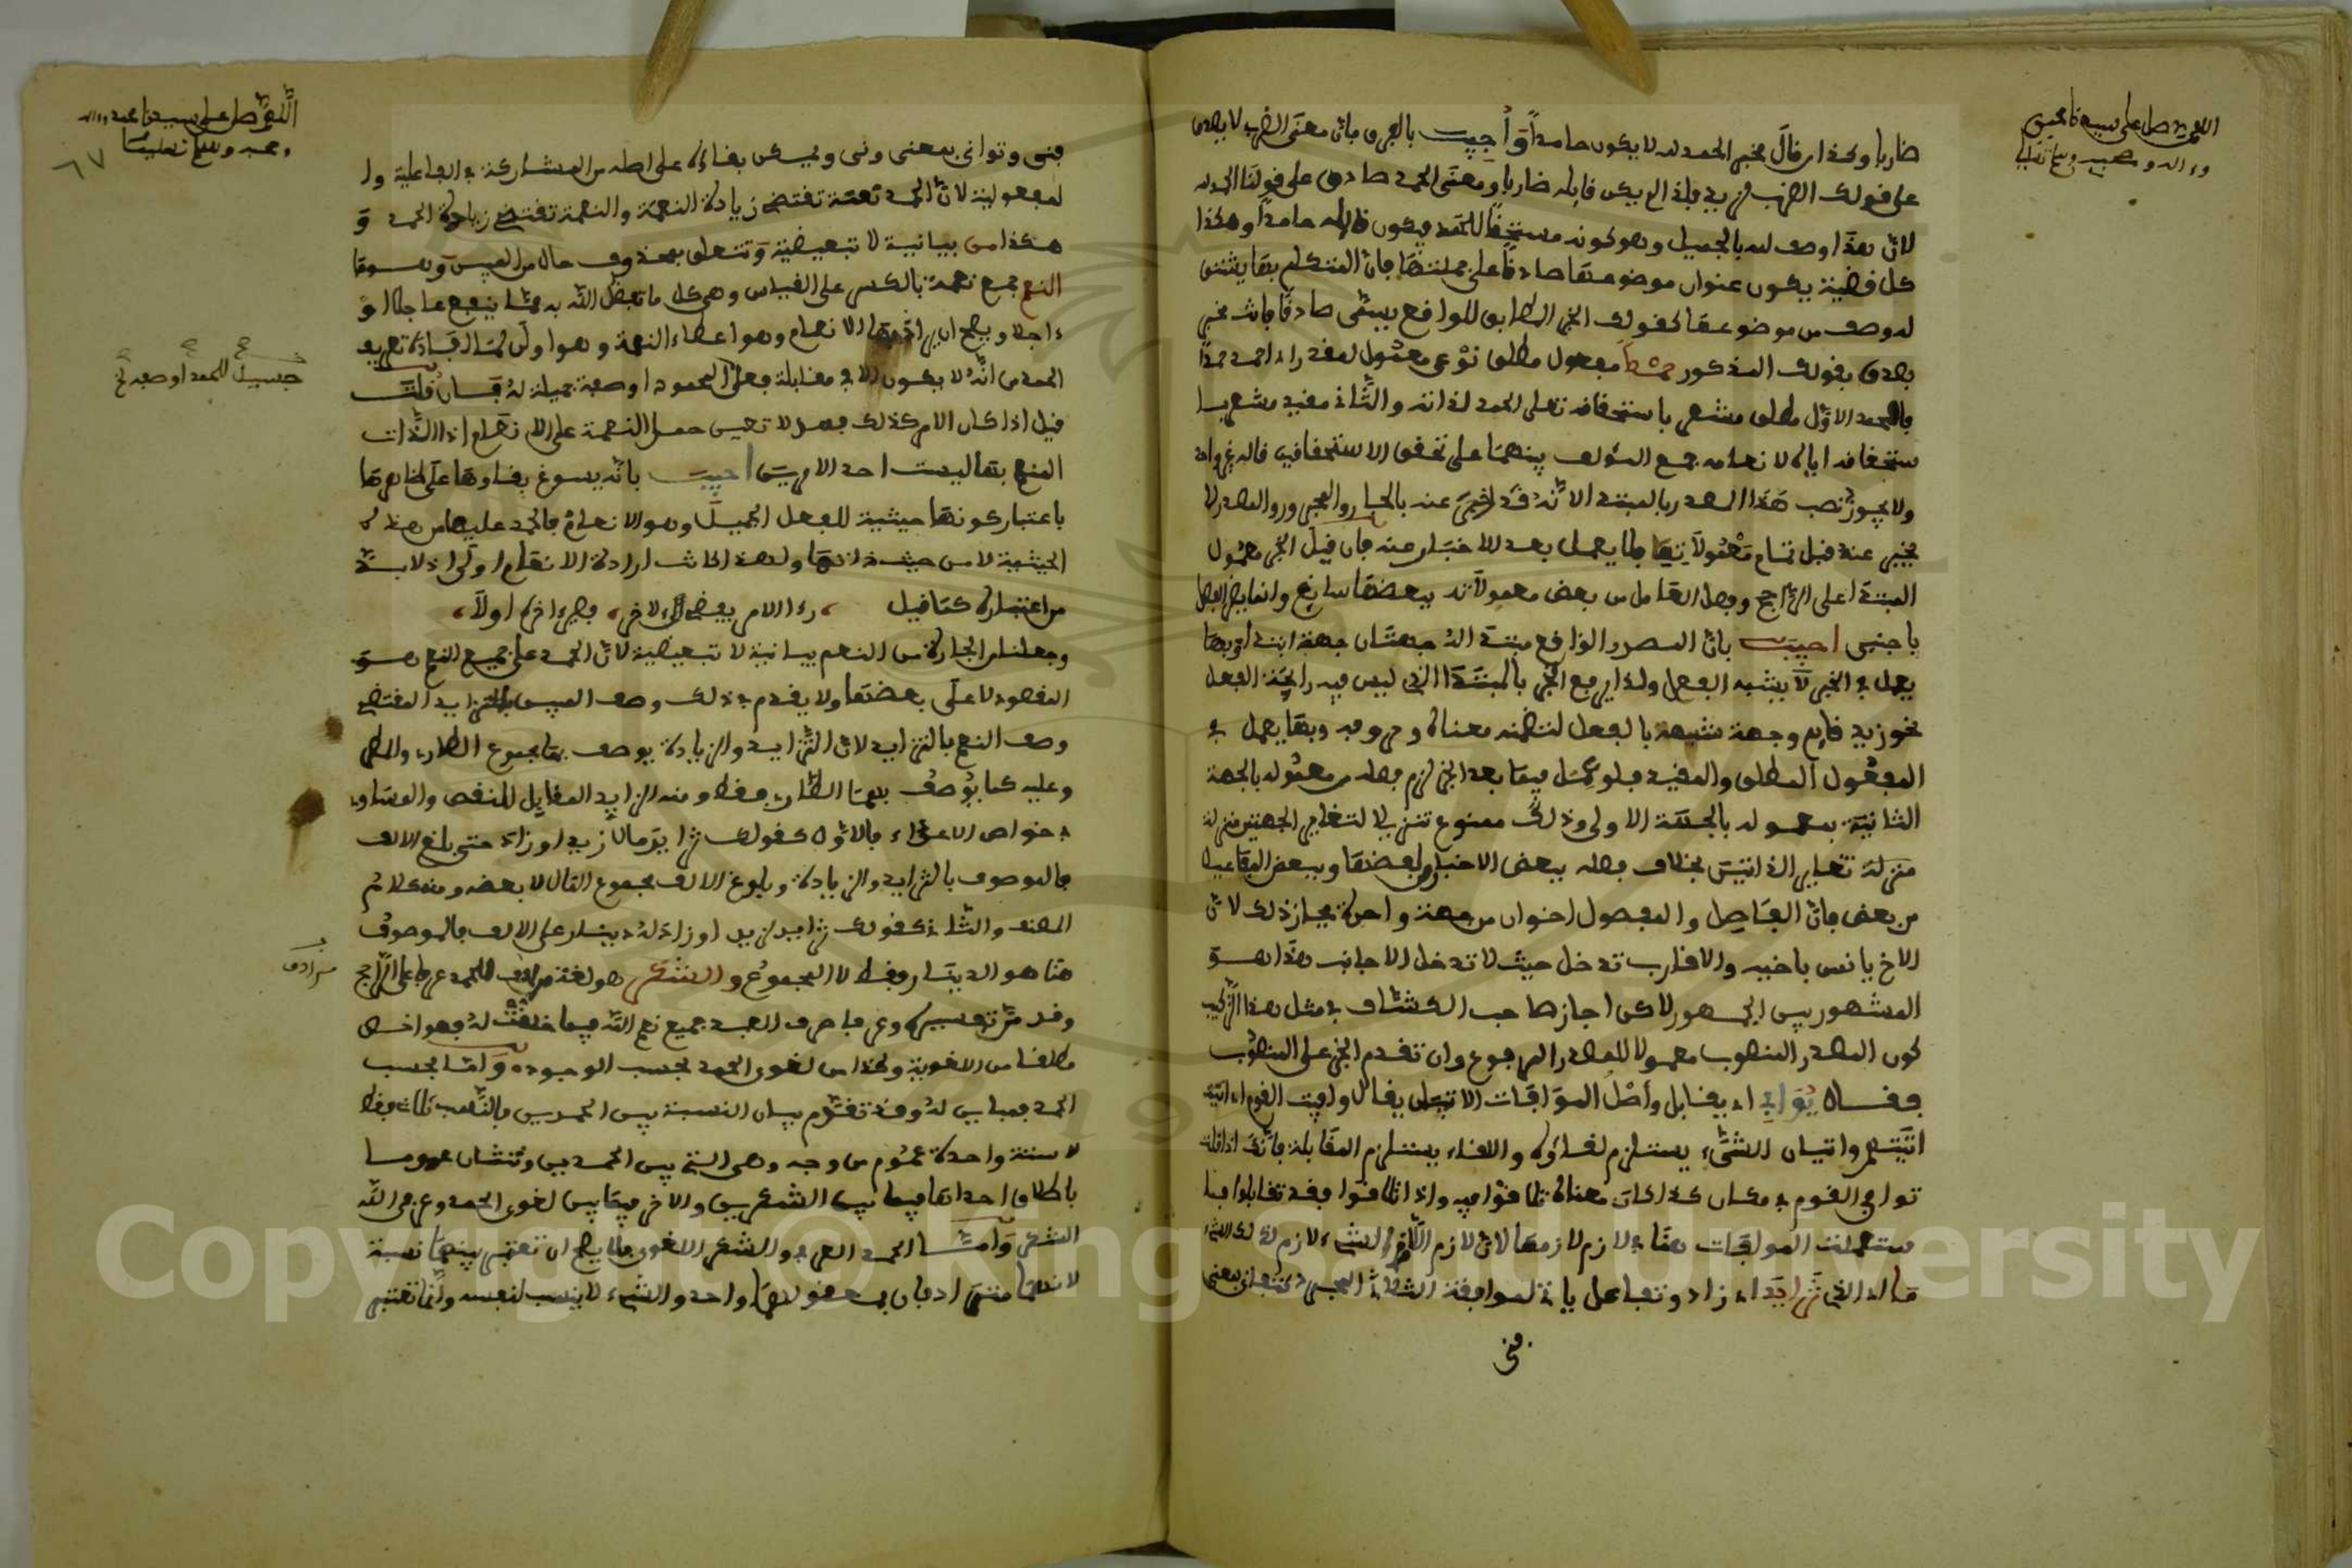 اللهم صل على سيدنا محمد
وءاله وصحبه وسلم تسليما
ضاربا وكذا من قال مخبر الحمد لله لا يكون حامدا وأجيب بالفرق فإن معنى الضرب لا يصدق
على قولك الضرب فلذا لم يكن قايله ضاربا ومعنى الحمد صادق على قولنا الحمد لله
لأن هذا وصف لله بالجميل وهو كونه مستحقا للحمد فيكون قايله حامدا وهكذا
كل قضية يكون عنوان موضوعها صادقا على جملتها فإن المتكلم بها يشتق
له وصف من موضوعها كقولك الخبر المطابق للواقع يسمى صادقا فإنك مخبر
بصدق بقولك المذكور حمدا مفعول مطلق نوعي معمول لمقدر اي احمد حمدا
فالحمد الأول مطلق مشعر باستحقاقه تعلى الحمد لذاته والثاني مقيد مشعر با
ستحقاقه اياه لإنعامه جمع المؤلف بينهما على تحقق الاستحقاقين قاله غير واحد
ولا يجوز نصب هذا المصدر بالمبتدا لأنه قد أخبر عنه بالجار والمجرور والمصدر لا
يخبر عنه قبل تمام معمولاته كما لا يعمل بعد الاخبار عنه فإن قيل الخبر معمول
المبتدا على الراجح وفصل العامل من بعض معمولاته ببعضها سايغ وانما يضر الفصل
باجنبي اجيب بأن المصدر الواقع مبتدا له جهتان جهة ابتداء وبها
يعمل في الخبر لا بشبه الفعل ولذا يرفع الخبر بالمبتدا الذي ليس فيه رايحة الفعل
نحو زيد قايم وجهة شبهه بالفعل لتضمنه معناه وحروفه وبها يعمل في
المفعول المطلق والمقيد فلو عمل فيما بعد الخبر لزم فصله من معموله بالجهة
الثانية بمعموله بالجهة الاولى وذلك ممنوع تنزيلا لتغاير الجهتين منزلة
منزلة تغاير الذاتين بخلاف فصله ببعض الاخبار لبعضها وببعض المفاعيل
من بعض فإن الفاصل والمفصول اخوان من جهة واحدة فجاز ذلك لأن
الاخ يانس باخيه والاقارب تدخل حيث لا تدخل الاجانب هذا هو
المشهور بين الجمهور لاكن اجاز صاحب الكشاف في مثل هذا التركيب
كون المصدر المنصوب معمولا للمصدر المرفوع وان تقدم الخبر على المنصوب
فقال يوافي اي يقابل وأصل الموافات الاتيان يقال وافيت القوم اي اتيتهم
اتيتهم واتيان الشيء يستلزم لقاءه واللقاء يستلزم المقابلة فإنك اذا قلت
توافي القوم في مكان كذا كان معناه تلاقوا فيه واذا تلاقوا فقد تقابلوا فا
ستعملت الموافات هنا في لازم لازمها لأن لازم اللازم للشيء لازم لذلك الشيء
فني
فنى وتوانى بمعنى ونى ويمكن بقاؤه على اصله من المشاركة في الفاعلية وا
لمفعولية لأن الحمد نعمة تقتضي زيادة النعمة والنعمة تقتضي زيادة الحمد و
هكذا من بيانية لا تبعيضية وتتعلق بمحذوف حال من
النعم جمع نعمة بالكسر على القياس وهي كل ما تفضل الله به مما ينفع عاجلا او
ءاجلا ويصح ان يراد بها الانعام وهو اعطاء النعمة وهو اولى
الحمد من انه لا يكون الا في مقابلة فعل المحمود او صفة جميلة له فإن قلت
قيل اذا كان الامر كذلك فهل لا تعين حمل النعمة على الانعام اذ الذات
المنعم بها ليست احد الامرين اجيب بأنه يسوغ بقاوها على ظاهرها
باعتبار كونها حيثية للفعل الجميل وهو الانعام فالحمد عليها من هذه
الحيثية لا من حيث ذاتها ولهذا كانت ارادة الانعام اولى اذ لا بد
من اعتباره كما قيل ، رءا الامر يفضي الى ءاخر ، فصير ءاخره اولا ،
وجعلنا من الجارة من النعم بيانية لا تبعيضية لأن الحمد على جميع النعم هو
المقصود لا على بعضها ولا يقدح في ذلك وصف بالتزايد المقتضي
وصف النعم بالتزايد لأن التزايد والزيادة يوصف بها مجموع الطارئ والمطرو
وعليه كما يوصف بهما الطارئ فقط ومنه الزايد المقابل للنقص والمساوي
في خواص الاعداد فالاول كقولك تزايد مال زيد او زاد حتى بلغ الالف
فالموصوف بالتزايد والزيادة وبلوغ الالف مجموع المال لا بعضه ومنه كلام
المصنف والثاني كقولك تزايد لزيد او زاد له دينار على الالف فالموصوف
هنا هو الدينار فقط لا المجموع والشكر هو لغة مرادف للحمد عرفا على الراجح
وقد مر تفسيره وعرفا صرف العبد جميع نعم الله فيما خلقت له فهو اخص
مطلقا من اللغوية وكذا من لغوي الحمد بحسب الوجود واما بحسب
الحمل فمباين له وقد تقدم بيان النسبة بين الحمدين فالنسب ثلاث فقط
لا ستة واحدة عموم من وجه وهي التي بين الحمدين وثنتان عموم
باطلاق احداهما فيما بين الشكرين والاخر فيما بين لغوي الحمد وعرفي
الشكر واما الحمد العرفي والشكر اللغوي فلا يصح ان تعتبر بينهما نسبة
لانهما مترادفان فمفهومهما واحد والشيء لا ينسب لنفسه وانما تعتبر
اللهم صل على سيدنا محمد وءاله
وصحبه وسلم تسليما
٦٧
مرادف
Copyright © King Saud University